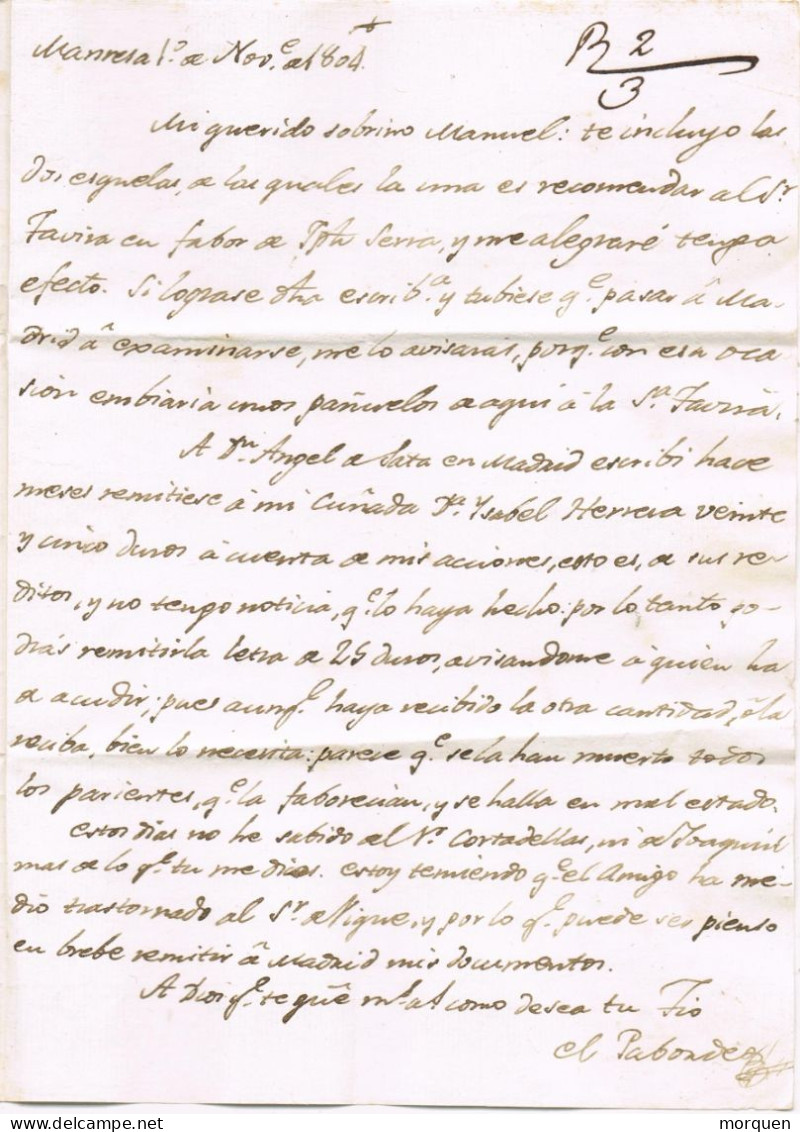 Manresa 1.º de Nov.e de 1804.
R 2
3
Mi querido sobrino Manuel: te incluyo las
dos esquelas, de las quales la una es recomendar al S.r
Tavira en fabor de Jph Serra, y me alegraré tenga
efecto. Si lograse dha escrib.a y tubiese q.e pasar â Ma-
drid â examinarse, me lo avisarás, porq.e con esa oca
sión embiaria unos pañuelos de aquí â la S.ra Tavira.
A D.n Angel de Sata en Madrid escribi hace
meses remitiese â mi Cuñada D.a Ysabel Herrera veinte
y cinco duros â cuenta de mis acciones, esto es, de sus re-
ditos, y no tengo noticia, q.e lo haya hecho: por lo tanto po-
drás remitirla letra de 25 duros, avisandome â quien ha
de acudir; pues aunq.e haya recibido la otra cantidad, ô la
reciba, bien lo necesita: parece q.e se la han muerto todos
los parientes, q.e la faborecian, y se halla en mal estado.
estos dias no he sabido del S.r Cortadellas, ni de Joaquin
mas de lo q.e tu me dices. estoy temiendo q.e el Amigo ha me-
dio trastornado al S.r de Nigue, y por lo q.e puede ser pienso
en brebe remitir â Madrid mis documentos.
A Dios q.e te gûe m.s a.s como desea tu Tio
el Paborde
morquen
delcampe.net